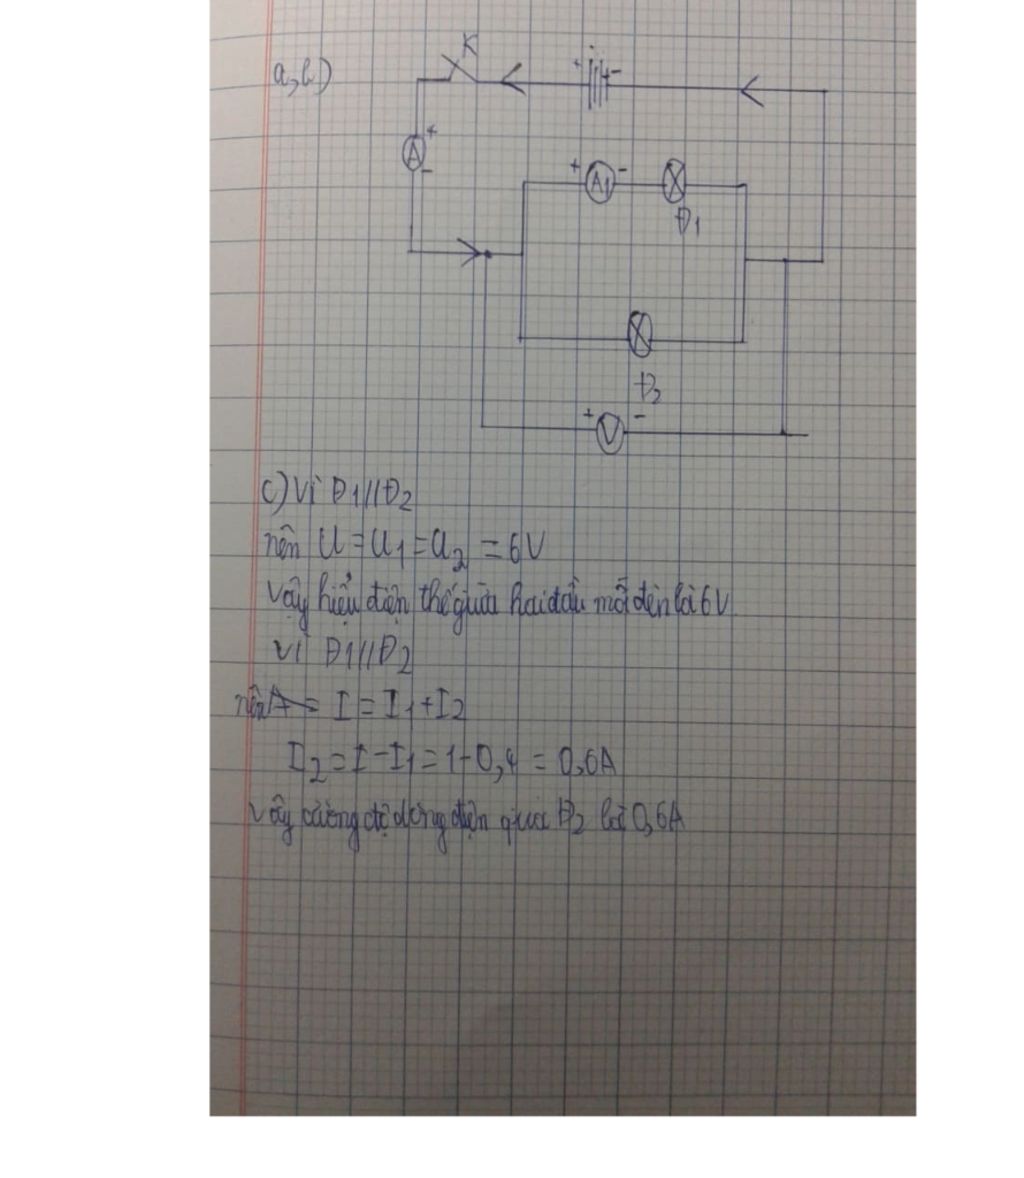 a,b)
K
+ -
+
A
-
+ A1 -
Đ1
Đ2
+ V -
c) Vì Đ1//Đ2
nên U = U1 = U2 = 6V
Vậy hiệu điện thế giữa hai đầu mỗi đèn là 6V
Vì Đ1//Đ2
nên A = I = I1 + I2
I2 = I - I1 = 1 - 0,4 = 0,6A
Vậy cường độ dòng điện qua Đ2 là 0,6A